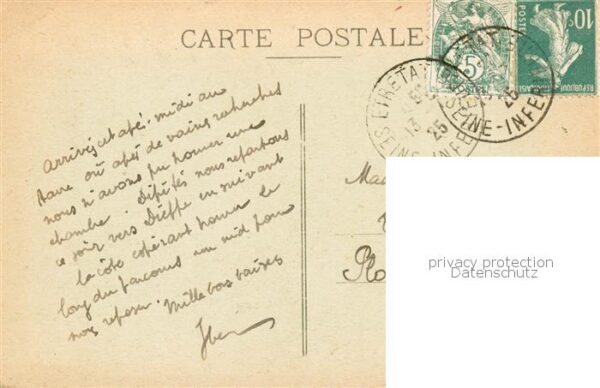 CARTE POSTALE
5c
10c
POSTES
REPUBLIQUE FRANÇAISE
ETRETAT
SEINE-INFER
13
25
Arrivés cet après-midi au
Havre où après de vaines recherches
nous n'avons pu trouver une
chambre. Dépités nous repartons
ce soir vers Dieppe en suivant
la côte espérant trouver le
long du parcours un nid pour
nous reposer. Mille bons baisers
Mad
privacy protection
Datenschutz